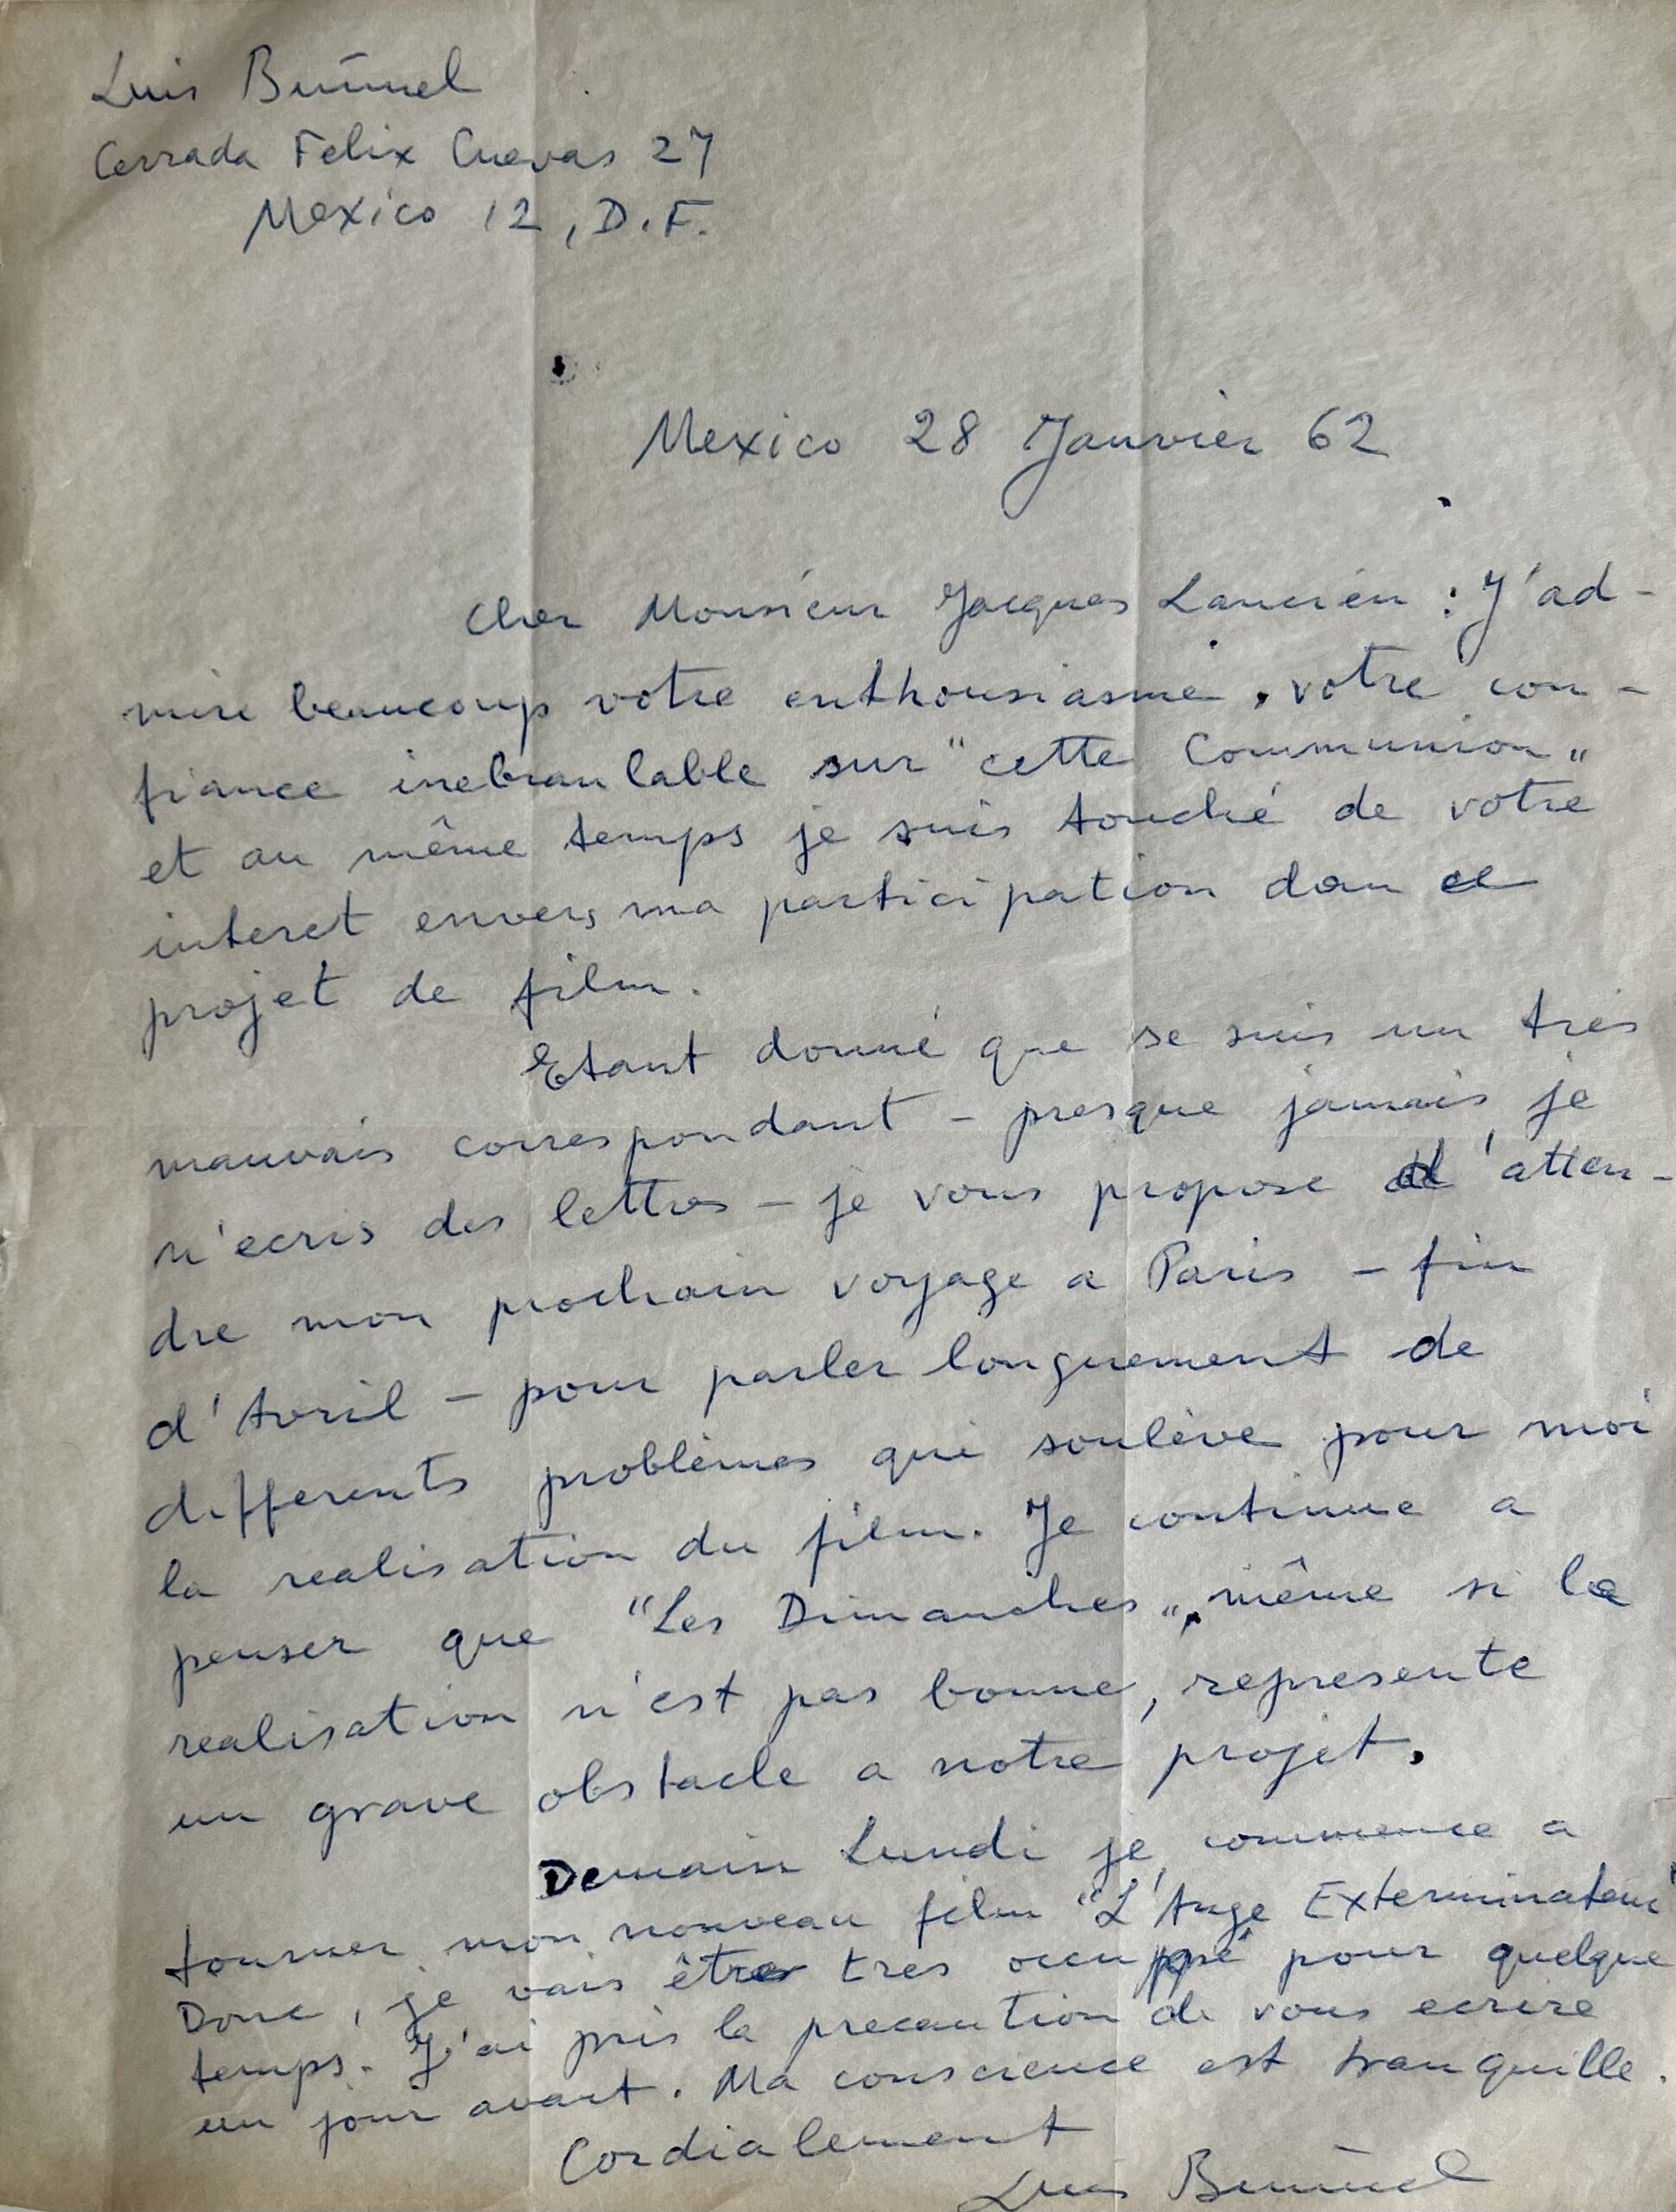 Luis Buñuel
Cerrada Felix Cuevas 27
Mexico 12, D.F.
Mexico 28 Janvier 62
Cher Monsieur Jacques Lancien : J'ad-
mire beaucoup votre enthousiasme, votre con-
fiance inebranlable sur "cette Communion"
et au même temps je suis touché de votre
interet envers ma participation dan ce
projet de film.
Etant donné que je suis un très
mauvais correspondant - presque jamais je
n'ecris des lettres - je vous propose d'atten-
dre mon prochain voyage a Paris - fin
d'Avril - pour parler longuement de
differents problèmes qui soulève pour moi
la realisation du film. Je continue a
penser que "Les Dimanches", même si la
realisation n'est pas bonne, represente
un grave obstacle a notre projet.
Demain Lundi je commence a
tourner mon nouveau film "L'Ange Exterminateur"
Donc, je vais être tres occuppé pour quelque
temps. J'ai pris la precaution de vous ecrire
un jour avant. Ma conscience est tranquille.
Cordialement
Luis Buñuel